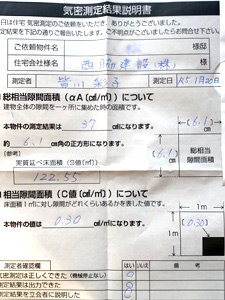 気密測定結果説明書
日は住宅 気密測定のご依頼をいただき、ありがとうございました。
定結果を下記の通りご報告いたします。ご不明点がございましたらお問合せ下さい。
ご依頼物件名 様邸
住宅会社様名 西脇建設(株) 様
測定者 測定日 R5.1月20日
総相当隙間面積(αA(c㎡/㎡)について
建物全体の隙間を一ヶ所に集めた時の面積です。
本物件の測定結果は 37 c㎡になります。
約 6.1 cm角の正方形になります。
(参考)
実質延べ床面積(S値(㎡))
122.55
(6.1)
cm
(6.1)
cm
総相当
隙間面積
相当隙間面積(C値(c㎡/㎡)について
床面積1㎡に対し隙間がどれくらいあるかを表した値です。
本物件の値は 0.30 c㎡/㎡になります。
1m
1m
(0.30)
測定者確認欄 はい いいえ 備考
密測定は正しくできた(機械停止なし)
測定結果は出力できた
測定結果を立会者に説明した